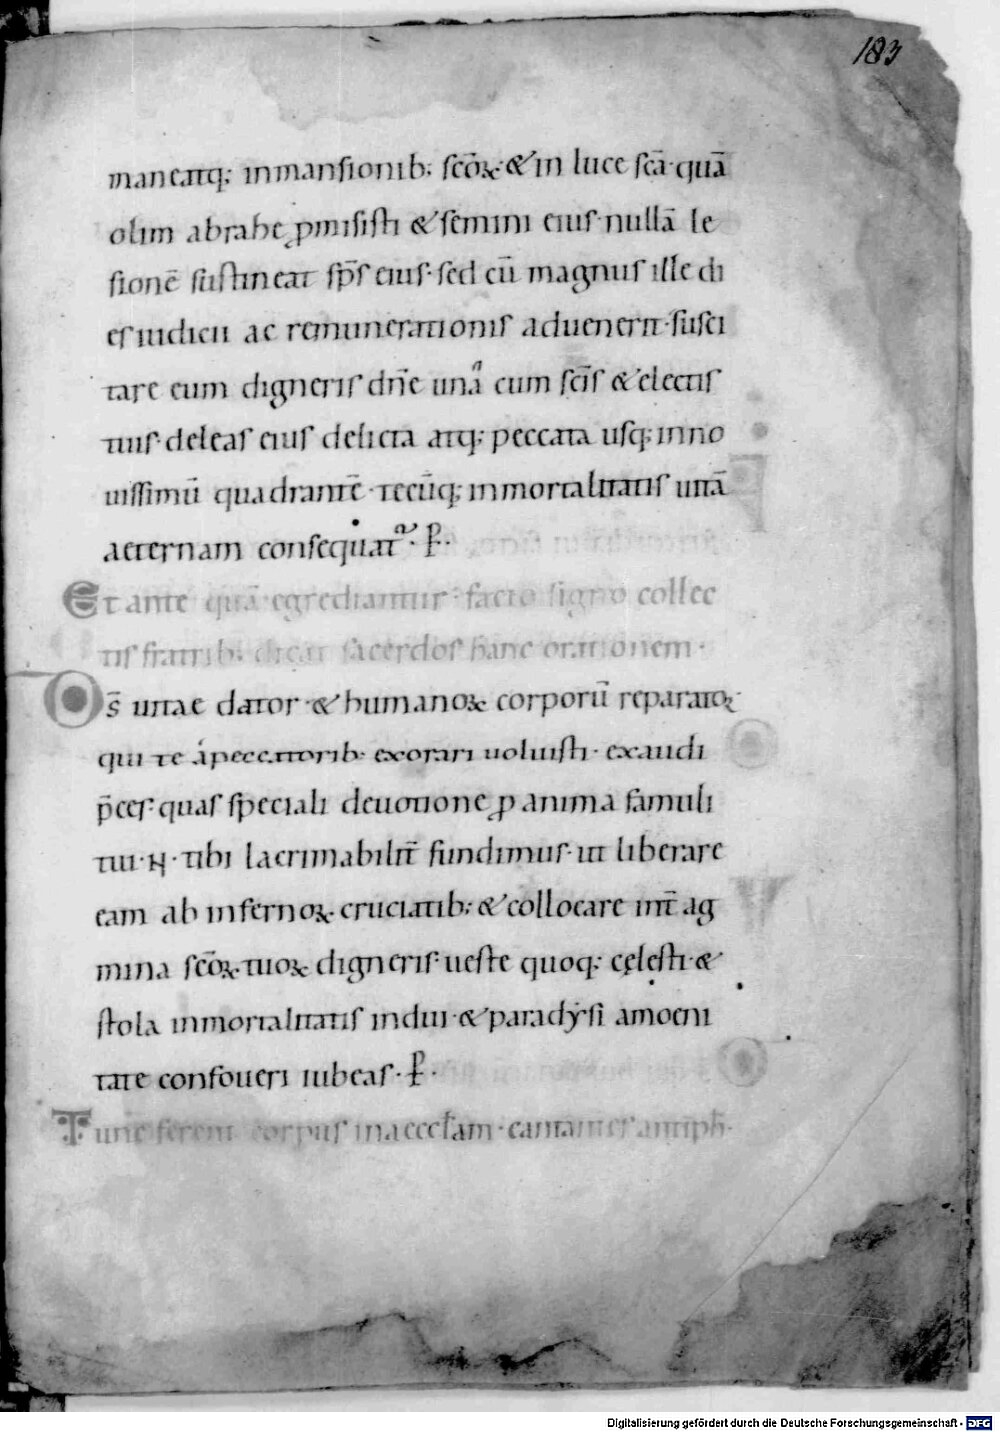 183
maneatq; inmansionib; scōꝝ· & in luce scā· quā
olim abrahe ꝓmisisti & semini eius· nullā le
sionē sustineat sp̄s eius· sed cū magnus ille di
es iudicii ac remunerationis aduenerit· susci
tare eum digneris dn̄e unā cum sc̄is & electis
tuis· deleas eius delicta atq; peccata usq; inno
uissimū quadrantē· tecūq; inmortalitatis uitā
aeternam consequat᷑· ꝑ·
Et ante quā egrediantur· facto signo collec
tis fratrib; dicat sacerdos hanc orationem·
Ds̄ uitae dator· & humanoꝝ corporū reparator·
qui te á peccatorib· exorari uoluisti· exaudi
p̄ces· quas speciali deuotione ꝓ anima famuli
tui· N· tibi lacrimabilit̄ fundimus· ut liberare
eam ab infernoꝝ cruciatib; & collocare int̄ ag
mina scōꝝ tuoꝝ digneris· ueste quoq; cęlesti· &
stola inmortalitatis indui· & paradẏsi amoeni
tate confoueri iubeas· ꝑ·
Tunc ferent corpus inaeccłam· cantantes antiph̄·
Digitalisierung gefördert durch die Deutsche Forschungsgemeinschaft - DFG